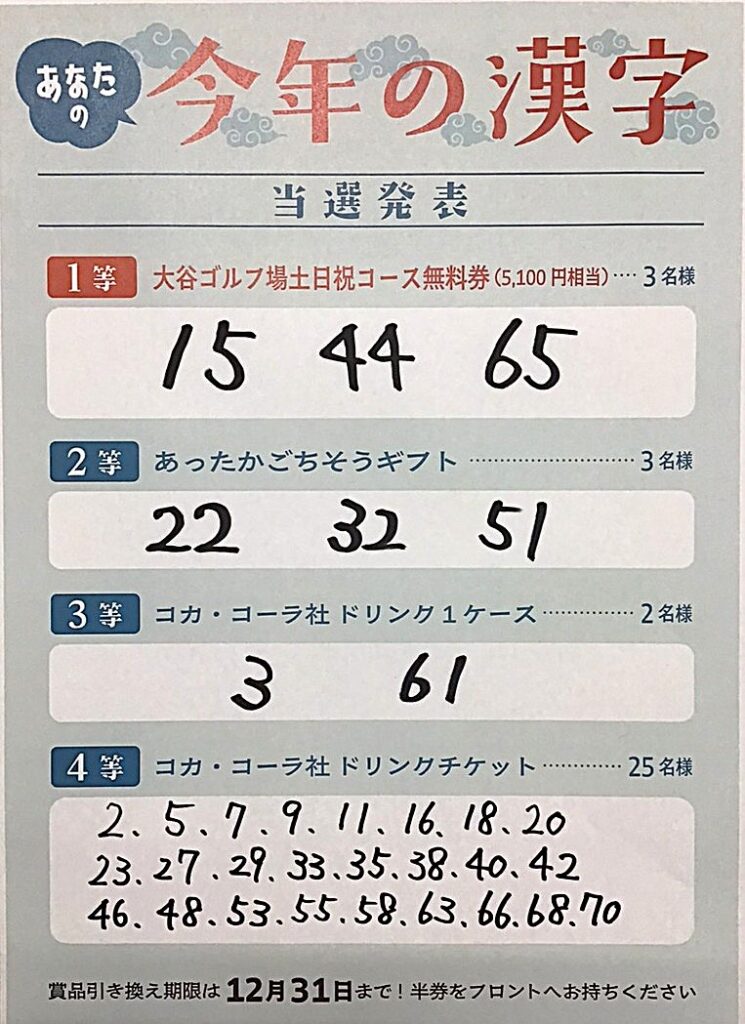 あなたの
今年の漢字
当選発表
1等 大谷ゴルフ場土日祝コース無料券(5,100円相当)‥‥3名様
15 44 65
2等 あったかごちそうギフト ‥‥‥‥‥‥‥‥‥ 3名様
22 32 51
3等 コカ・コーラ社 ドリンク1ケース ‥‥‥‥‥ 2名様
3 61
4等 コカ・コーラ社 ドリンクチケット ‥‥‥‥ 25名様
2、5、7、9、11、16、18、20
23、27、29、33、35、38、40、42
46、48、53、55、58、63、66、68、70
賞品引き換え期限は12月31日まで!半券をフロントへお持ちください